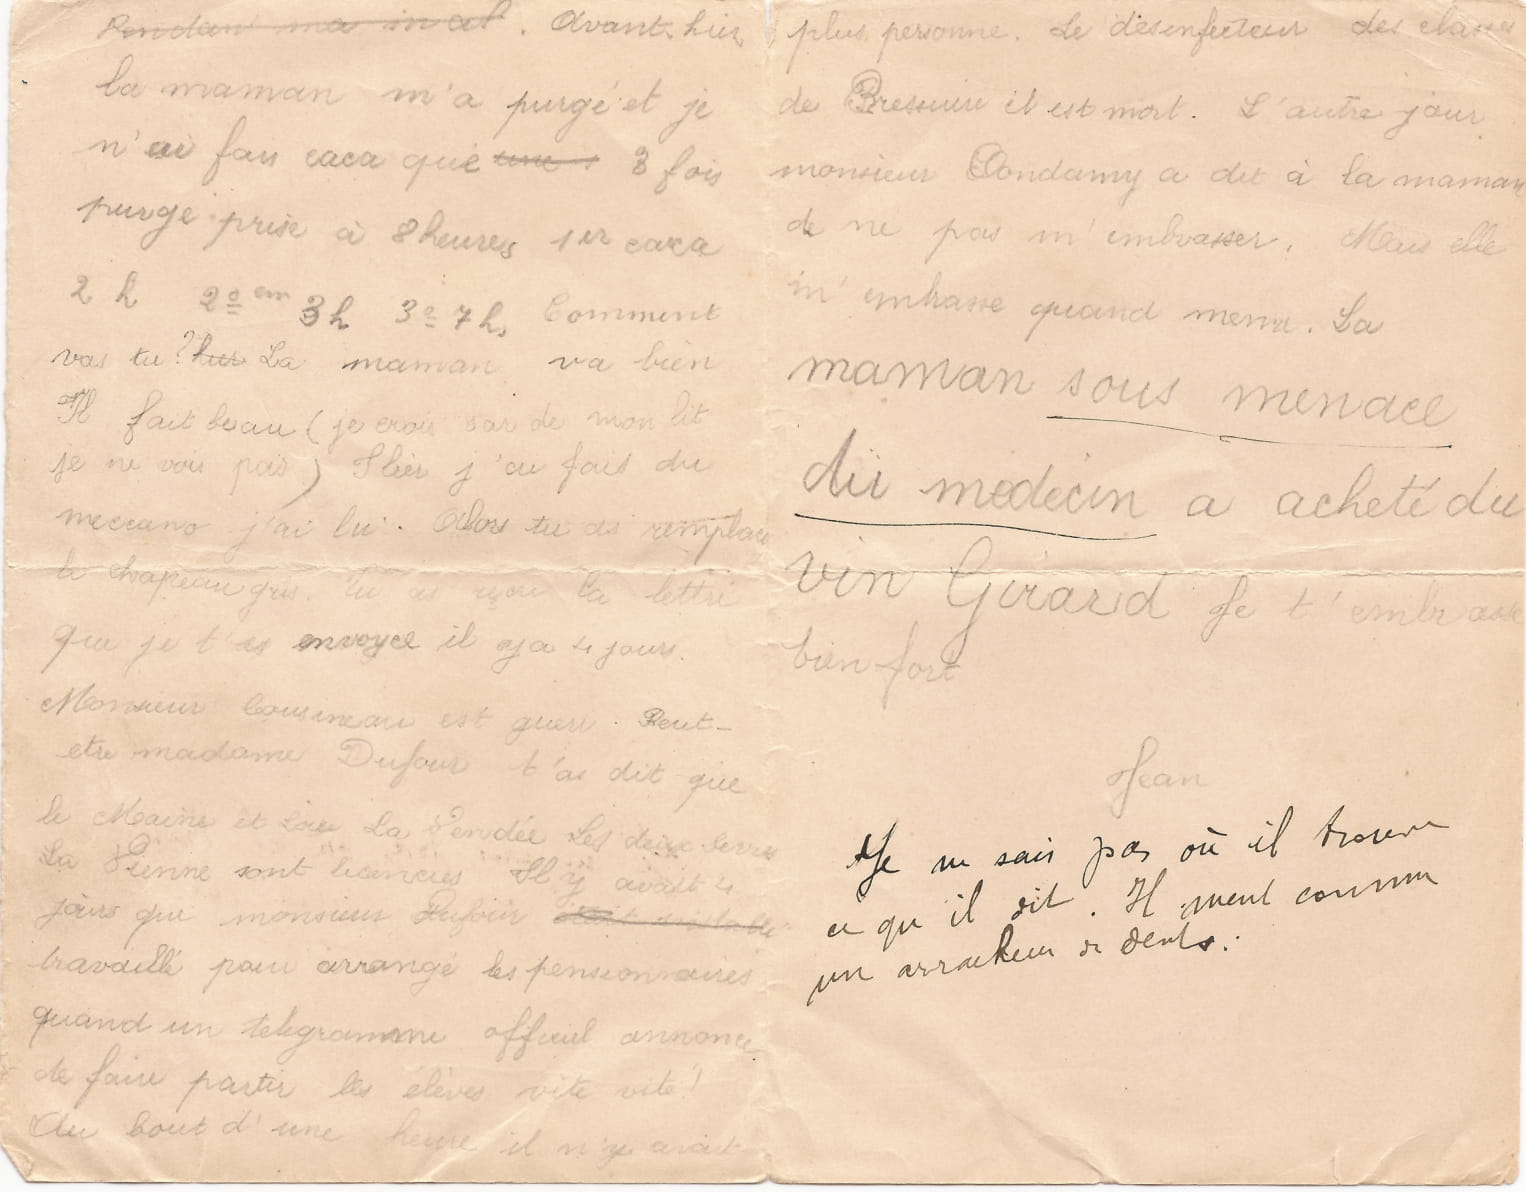 Pendant ma mal. Avant hier
la maman m'a purgé et je
n'ai fais caca que une s 3 fois
purge prise à 8 heures 1er caca
2 h 2º em 3h 3º 7h, Comment
vas tu? La maman va bien
Il fait beau (je crois car de mon lit
je ne vois pas) Hier j'ai fais du
meccano j'ai lu. Alors tu as remplacé
le chapeau gris. Tu as reçu la lettre
que je t'es envoyee il y a 4 jours.
Monsieur Cousineau est gueri. Peut-
etre madame Dufour t'as dit que
le Maine et Loire La Vendée Les deux sevres
La Vienne sont licenciés Il y avait 4
jours que monsieur Dufour
travaillé pour arrangé les pensionnaires
quand un telegramme officiel annonce
de faire partir les élèves vite vite!
Au bout d'une heure il n'y avait
plus personne. Le desinfecteur des classes
de Bressuire il est mort. L'autre jour
monsieur Dondamy a dit à la maman
de ne pas m'embrasser. Mais elle
m'embrasse quand meme. La
maman sous menace
du medecin a acheté du
vin Girard Je t'embrasse
bien fort
Jean
Je ne sais pas où il trouve
ce qu'il dit. Il ment comme
un arracheur de dents.